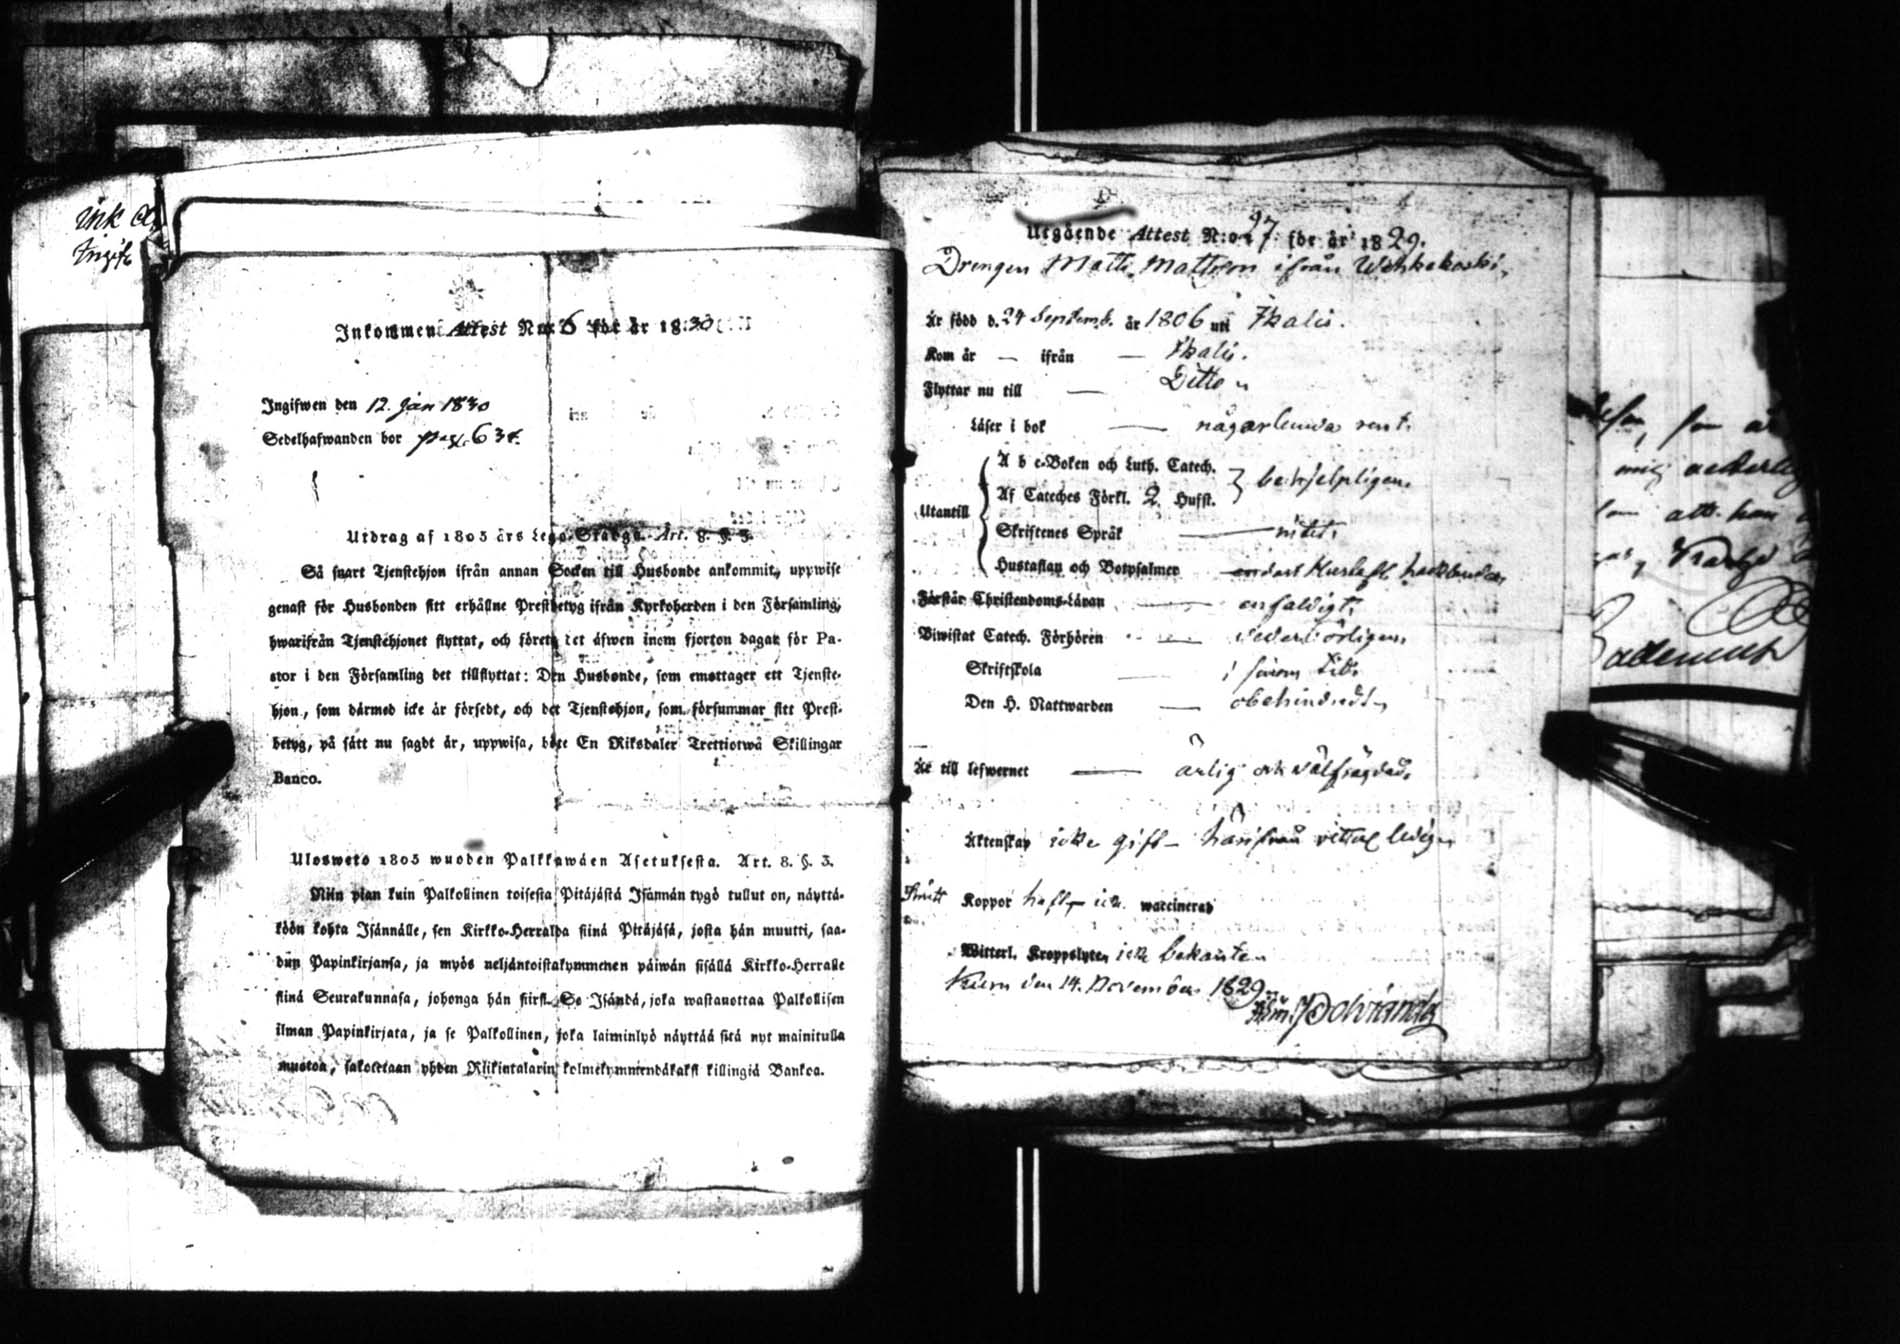 Ink
Ingifv
Inkommen Attest N:o 6 för år 1830
Ingifwen den 12. Jan 1830
Sedelhafwanden bor pag. 634.
Utdrag af 1805 års Lego-Stadga. Art. 8. §. 3.
Så snart Tjenstehjon ifrån annan Socken till Husbonde ankommit, uppwise
genast för Husbonden sitt erhållne Prestbetyg ifrån Kyrkoherden i den Församling,
hwarifrån Tjenstehjonet flyttat, och förete det äfwen inom fjorton dagar för Pa-
stor i den Församling det tillflyttat: Den Husbonde, som emottager ett Tjenste-
hjon, som därmed icke är försedt, och det Tjenstehjon, som försummar sitt Prest-
betyg, på sätt nu sagdt är, uppwisa, böte En Riksdaler Trettiotwå Skillingar
Banco.
Ulosweto 1805 wuoden Palkkawäen Asetuksesta. Art. 8. §. 3.
Niin pian kuin Palkollinen toisesta Pitäjästä Isännän tygö tullut on, näyttä-
köön kohta Isännälle, sen Kirkko-Herralda siinä Pitäjäsä, josta hän muutti, saa-
dun Papinkirjansa, ja myös neljäntoistakymmenen päiwän sisällä Kirkko-Herralle
siinä Seurakunnasa, johonga hän siirsi. Se Isändä, joka wastanottaa Palkollisen
ilman Papinkirjata, ja se Palkollinen, joka laiminlyö näyttää sitä nyt mainitulla
muotoa, sakotetaan yhden Riikintalarin kolmekymmendäkaksi killingiä Bankoa.
Utgående Attest N:o 27 för år 1829.
Drengen Matts Mattsson ifrån Wehkakoski,
Är född d. 24 Septemb. år 1806 uti Ikalis.
Kom år — ifrån — Ikalis.
Flyttar nu till — Ditto
Läser i bok — någorlunda rent.
A b c-Boken och Luth. Catech.
Af Cateches Förkl. 2 Hufst. behjelpligen.
Utantill
Skriftenes Språk — intet.
Hustaflan och Botpsalmer
Förstår Christendoms-Läran — enfaldigt.
Biwistat Catech. Förhören — vederbörligen.
Skriftskola — i sinom tid.
Den H. Nattwarden — obehindradt
Är till lefwernet — ärlig och välfrägdad.
Äktenskap icke gift — härifrån ledig
Koppor haft, icke waccinerad
Witterl. Kroppslyten icke bekante
Kuru den 14. November 1829.